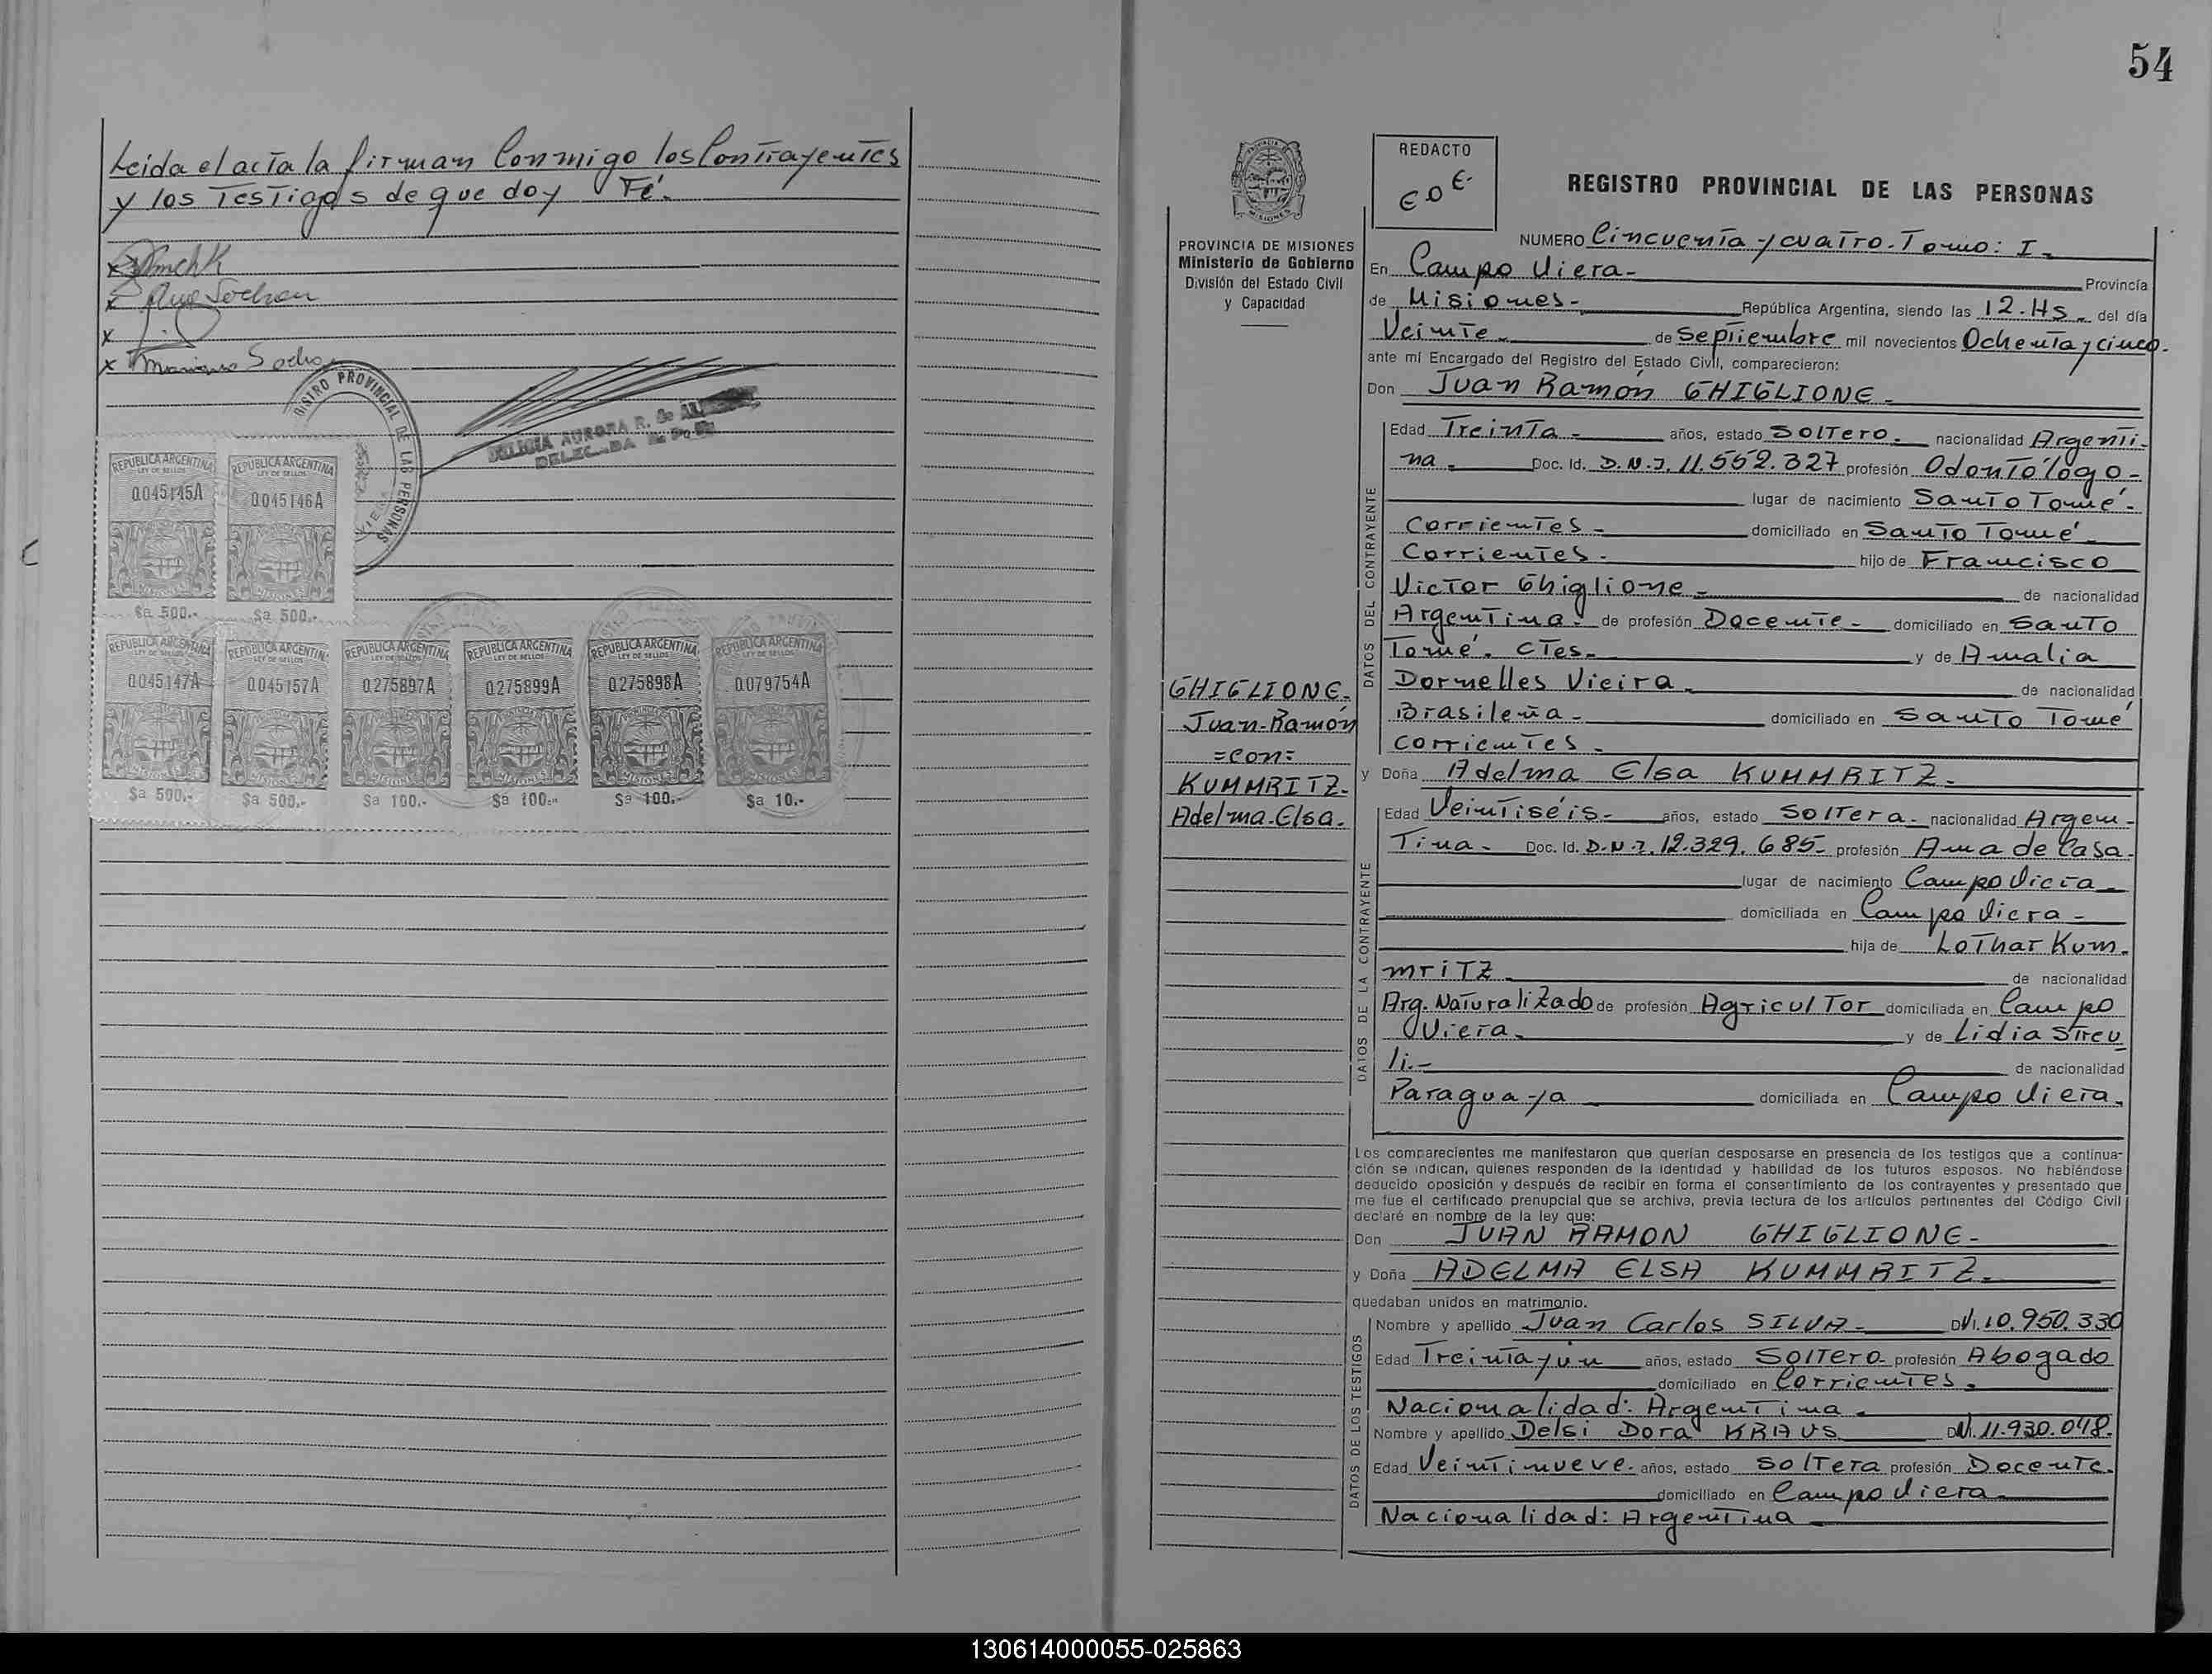 Leida el acta la firman Conmigo los Contrayentes
y los Testigos de que doy Fé.
REGISTRO PROVINCIAL DE LAS PERSONAS
DELEGADA
REPUBLICA ARGENTINA
LEY DE SELLOS
0045145A
MISIONES
$a 500.-
REPUBLICA ARGENTINA
LEY DE SELLOS
0045146A
MISIONES
$a 500.-
REPUBLICA ARGENTINA
LEY DE SELLOS
0045147A
MISIONES
$a 500.-
REPUBLICA ARGENTINA
LEY DE SELLOS
0045157A
MISIONES
$a 500.-
REPUBLICA ARGENTINA
LEY DE SELLOS
0275897A
MISIONES
$a 100.-
REPUBLICA ARGENTINA
LEY DE SELLOS
0275899A
MISIONES
$a 100.-
REPUBLICA ARGENTINA
LEY DE SELLOS
0275898A
MISIONES
$a 100.-
REPUBLICA ARGENTINA
LEY DE SELLOS
0079754A
MISIONES
$a 10.-
54
PROVINCIA DE MISIONES
Ministerio de Gobierno
División del Estado Civil
y Capacidad
GHIGLIONE-
Juan-Ramón
=con=
KUMMRITZ-
Adelma-Elsa.
REDACTO
REGISTRO PROVINCIAL DE LAS PERSONAS
NUMERO Cincuenta y cuatro. Tomo: I-
En Campo Viera- Provincia
de Misiones- República Argentina, siendo las 12.Hs. del día
Veinte- de Septiembre mil novecientos Ochenta y cinco.
ante mí Encargado del Registro del Estado Civil, comparecieron:
Don Juan Ramón GHIGLIONE-
DATOS DEL CONTRAYENTE
Edad Treinta- años, estado Soltero. nacionalidad Argenti-
na- Doc. Id. D.N.I. 11.552.327 profesión Odontólogo-
lugar de nacimiento Santo Tomé-
Corrientes- domiciliado en Santo Tomé-
Corrientes- hijo de Francisco
Victor Ghiglione- de nacionalidad
Argentina- de profesión Docente- domiciliado en Santo
Tomé. CTes- y de Amalia
Dornelles Vieira- de nacionalidad
Brasileña- domiciliado en Santo Tomé
Corrientes-
y Doña Adelma Elsa KUMMRITZ-
DATOS DE LA CONTRAYENTE
Edad Veintiséis- años, estado Soltera- nacionalidad Argen-
Tina- Doc. Id. D.N.I. 12.329.685- profesión Ama de Casa-
lugar de nacimiento Campo Viera-
domiciliada en Campo Viera-
hija de Lothar Kum-
mritz- de nacionalidad
Arg. Naturalizado de profesión Agricultor domiciliada en Campo
Viera- y de Lidia Streu
li.- de nacionalidad
Paraguaya domiciliada en Campo Viera.
Los comparecientes me manifestaron que querían desposarse en presencia de los testigos que a continua-
ción se indican, quienes responden de la identidad y habilidad de los futuros esposos. No habiéndose
deducido oposición y después de recibir en forma el consentimiento de los contrayentes y presentado que
me fue el certificado prenupcial que se archiva, previa lectura de los artículos pertinentes del Código Civil
declaré en nombre de la ley que:
Don JUAN RAMON GHIGLIONE-
y Doña ADELMA ELSA KUMMRITZ-
quedaban unidos en matrimonio.
DATOS DE LOS TESTIGOS
Nombre y apellido Juan Carlos SILVA- DNI. 10.950.330
Edad Treinta y un años, estado Soltero- profesión Abogado
domiciliado en Corrientes.
Nacionalidad: Argentina.
Nombre y apellido Delsi Dora KRAUS DNI. 11.930.048.
Edad Veintinueve. años, estado Soltera profesión Docente.
domiciliado en Campo Viera-
Nacionalidad: Argentina
130614000055-025863